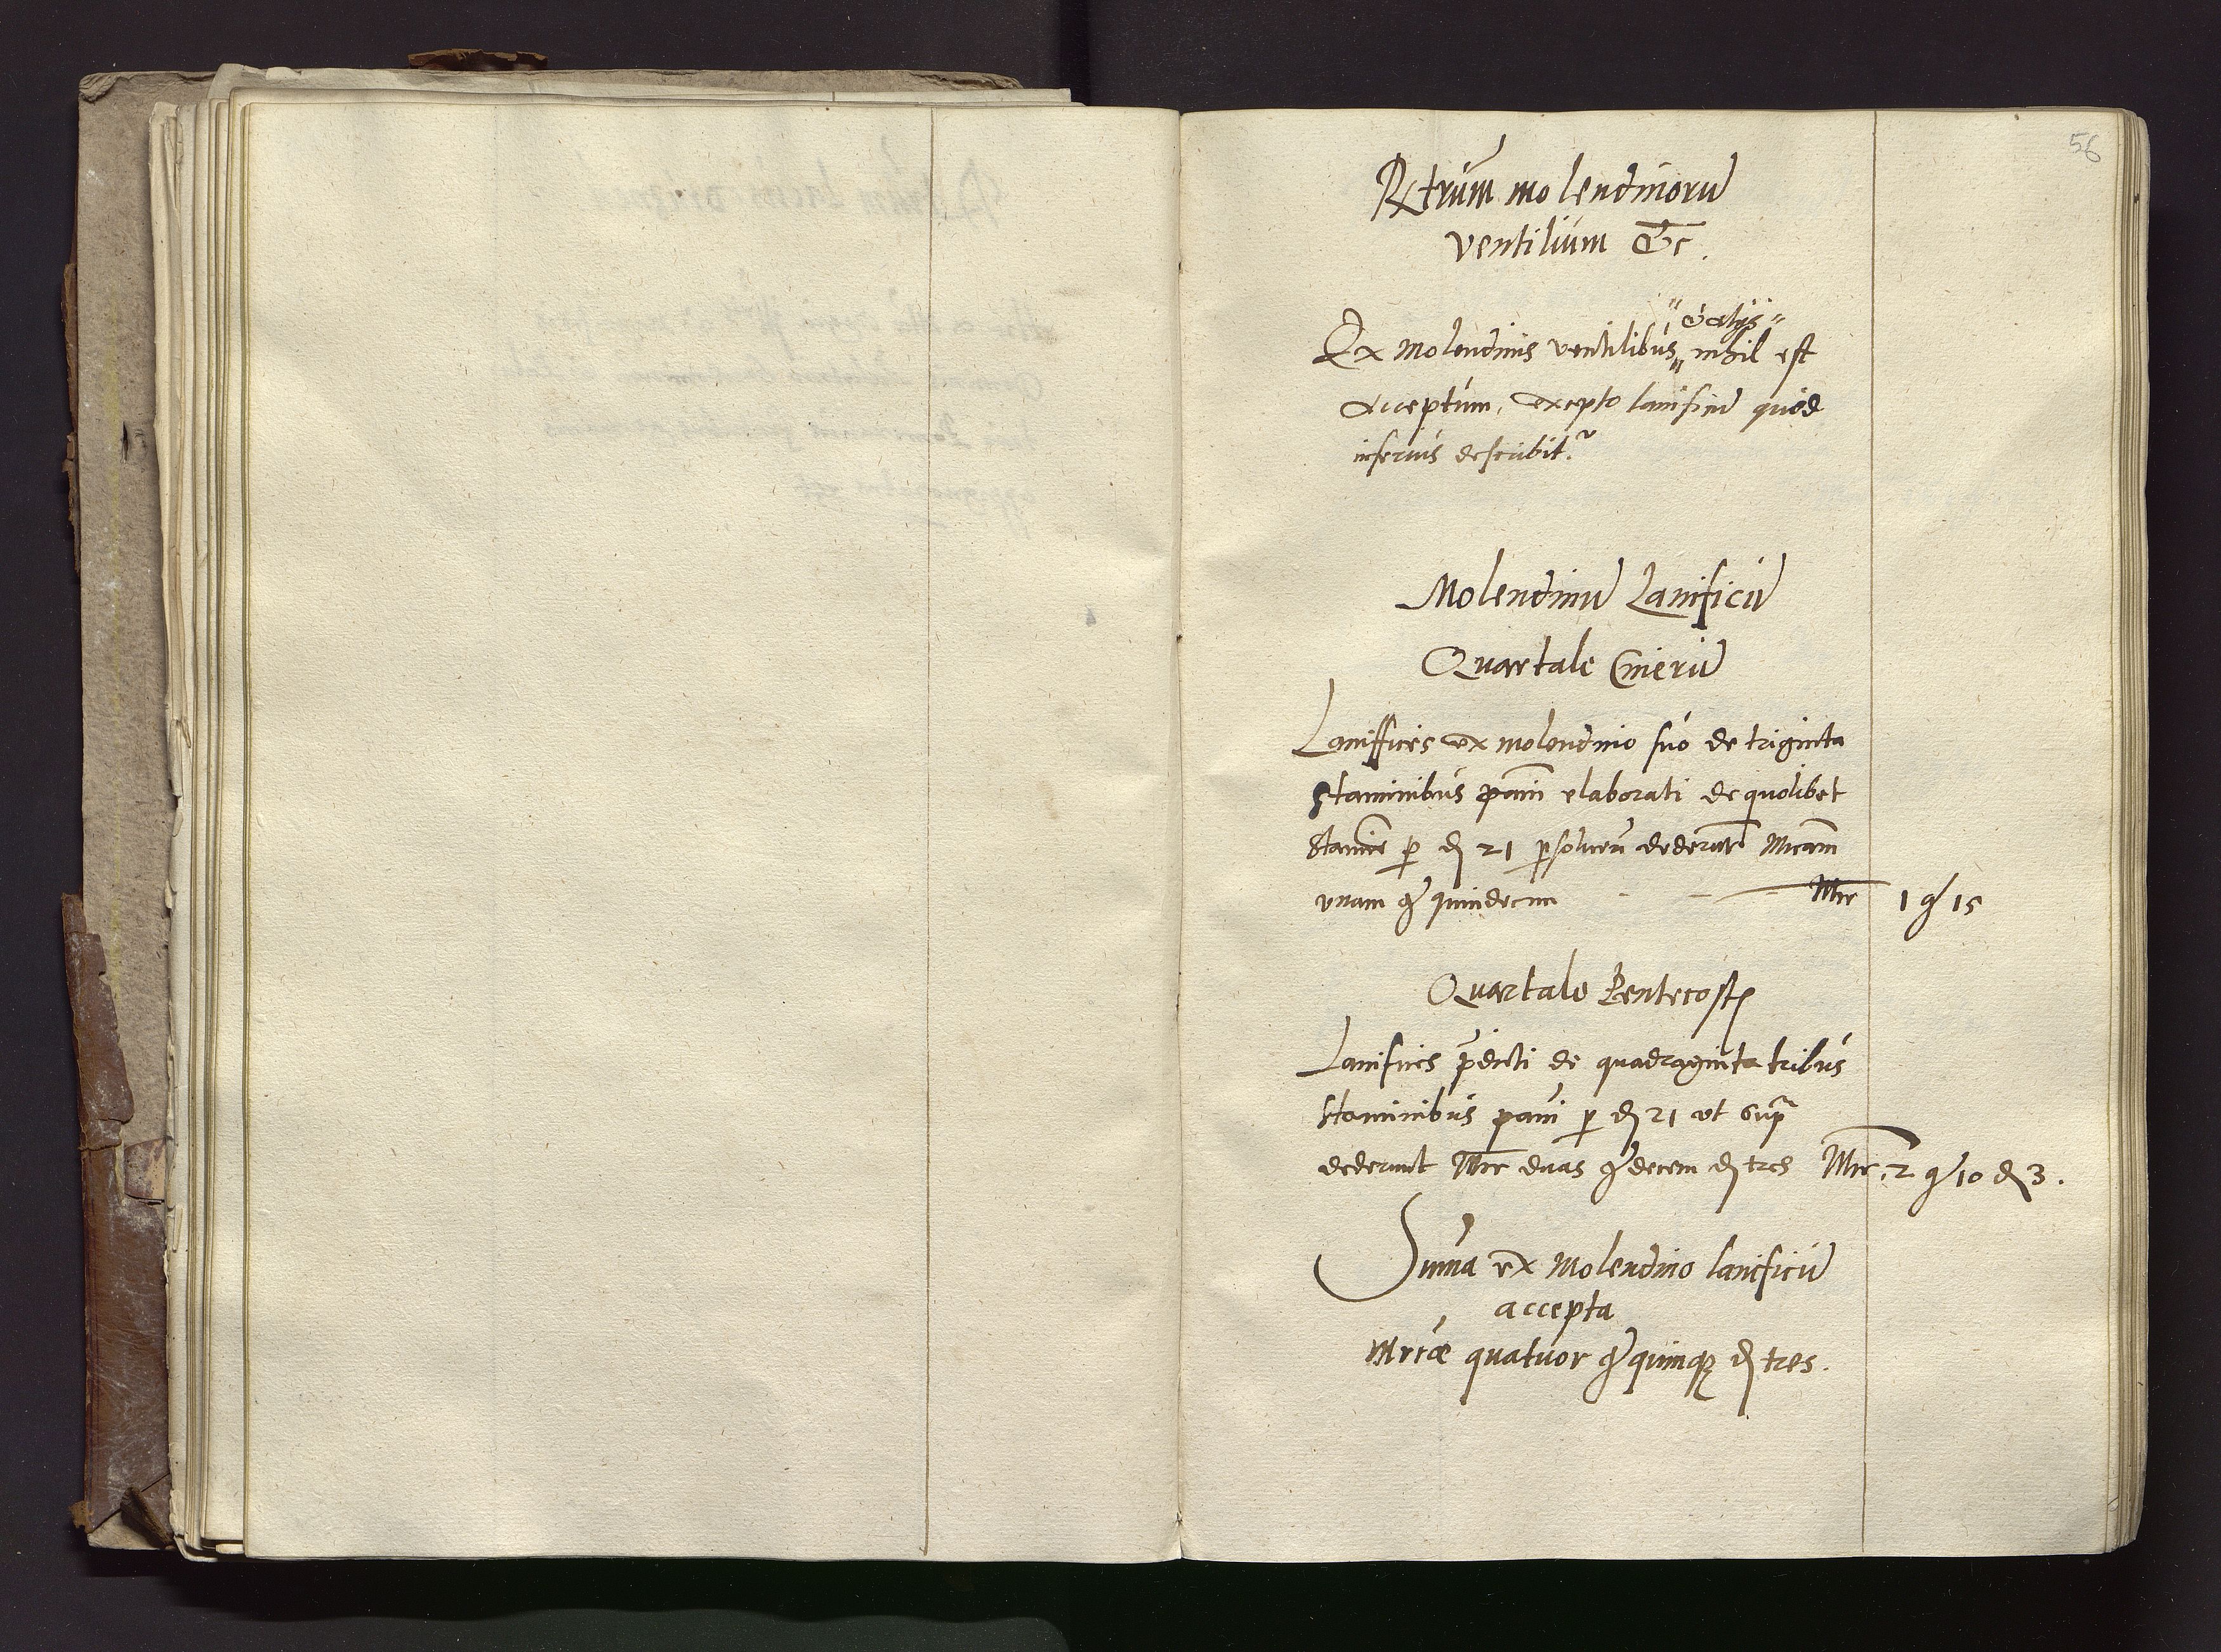 56
Rtrum molendinoru
ventilium Etc.
Et alijs
Ex Molendinis ventilibus nihil est
acceptum, excepto lanificu quod
inferius describitr
Molendinu Lanificu
Quartale Cineru
Laniffices ex molendino suo de triginta
Staminibus pani elaborati de quolibet
Stamine p d 21 psoluen dederunt Mrcam
vnam g quindecim - - Mrc 1 g 15
Quartale Pentecost
Lanifices pdicti de quadraginta tribus
staminibus pani p d 21 vt sup
dederunt Mrc duas g decem d tres Mrc 2 g 10 d 3.
Suma ex Molendino lanificu
accepta
Mrcæ quatuor g quinqz d tres.